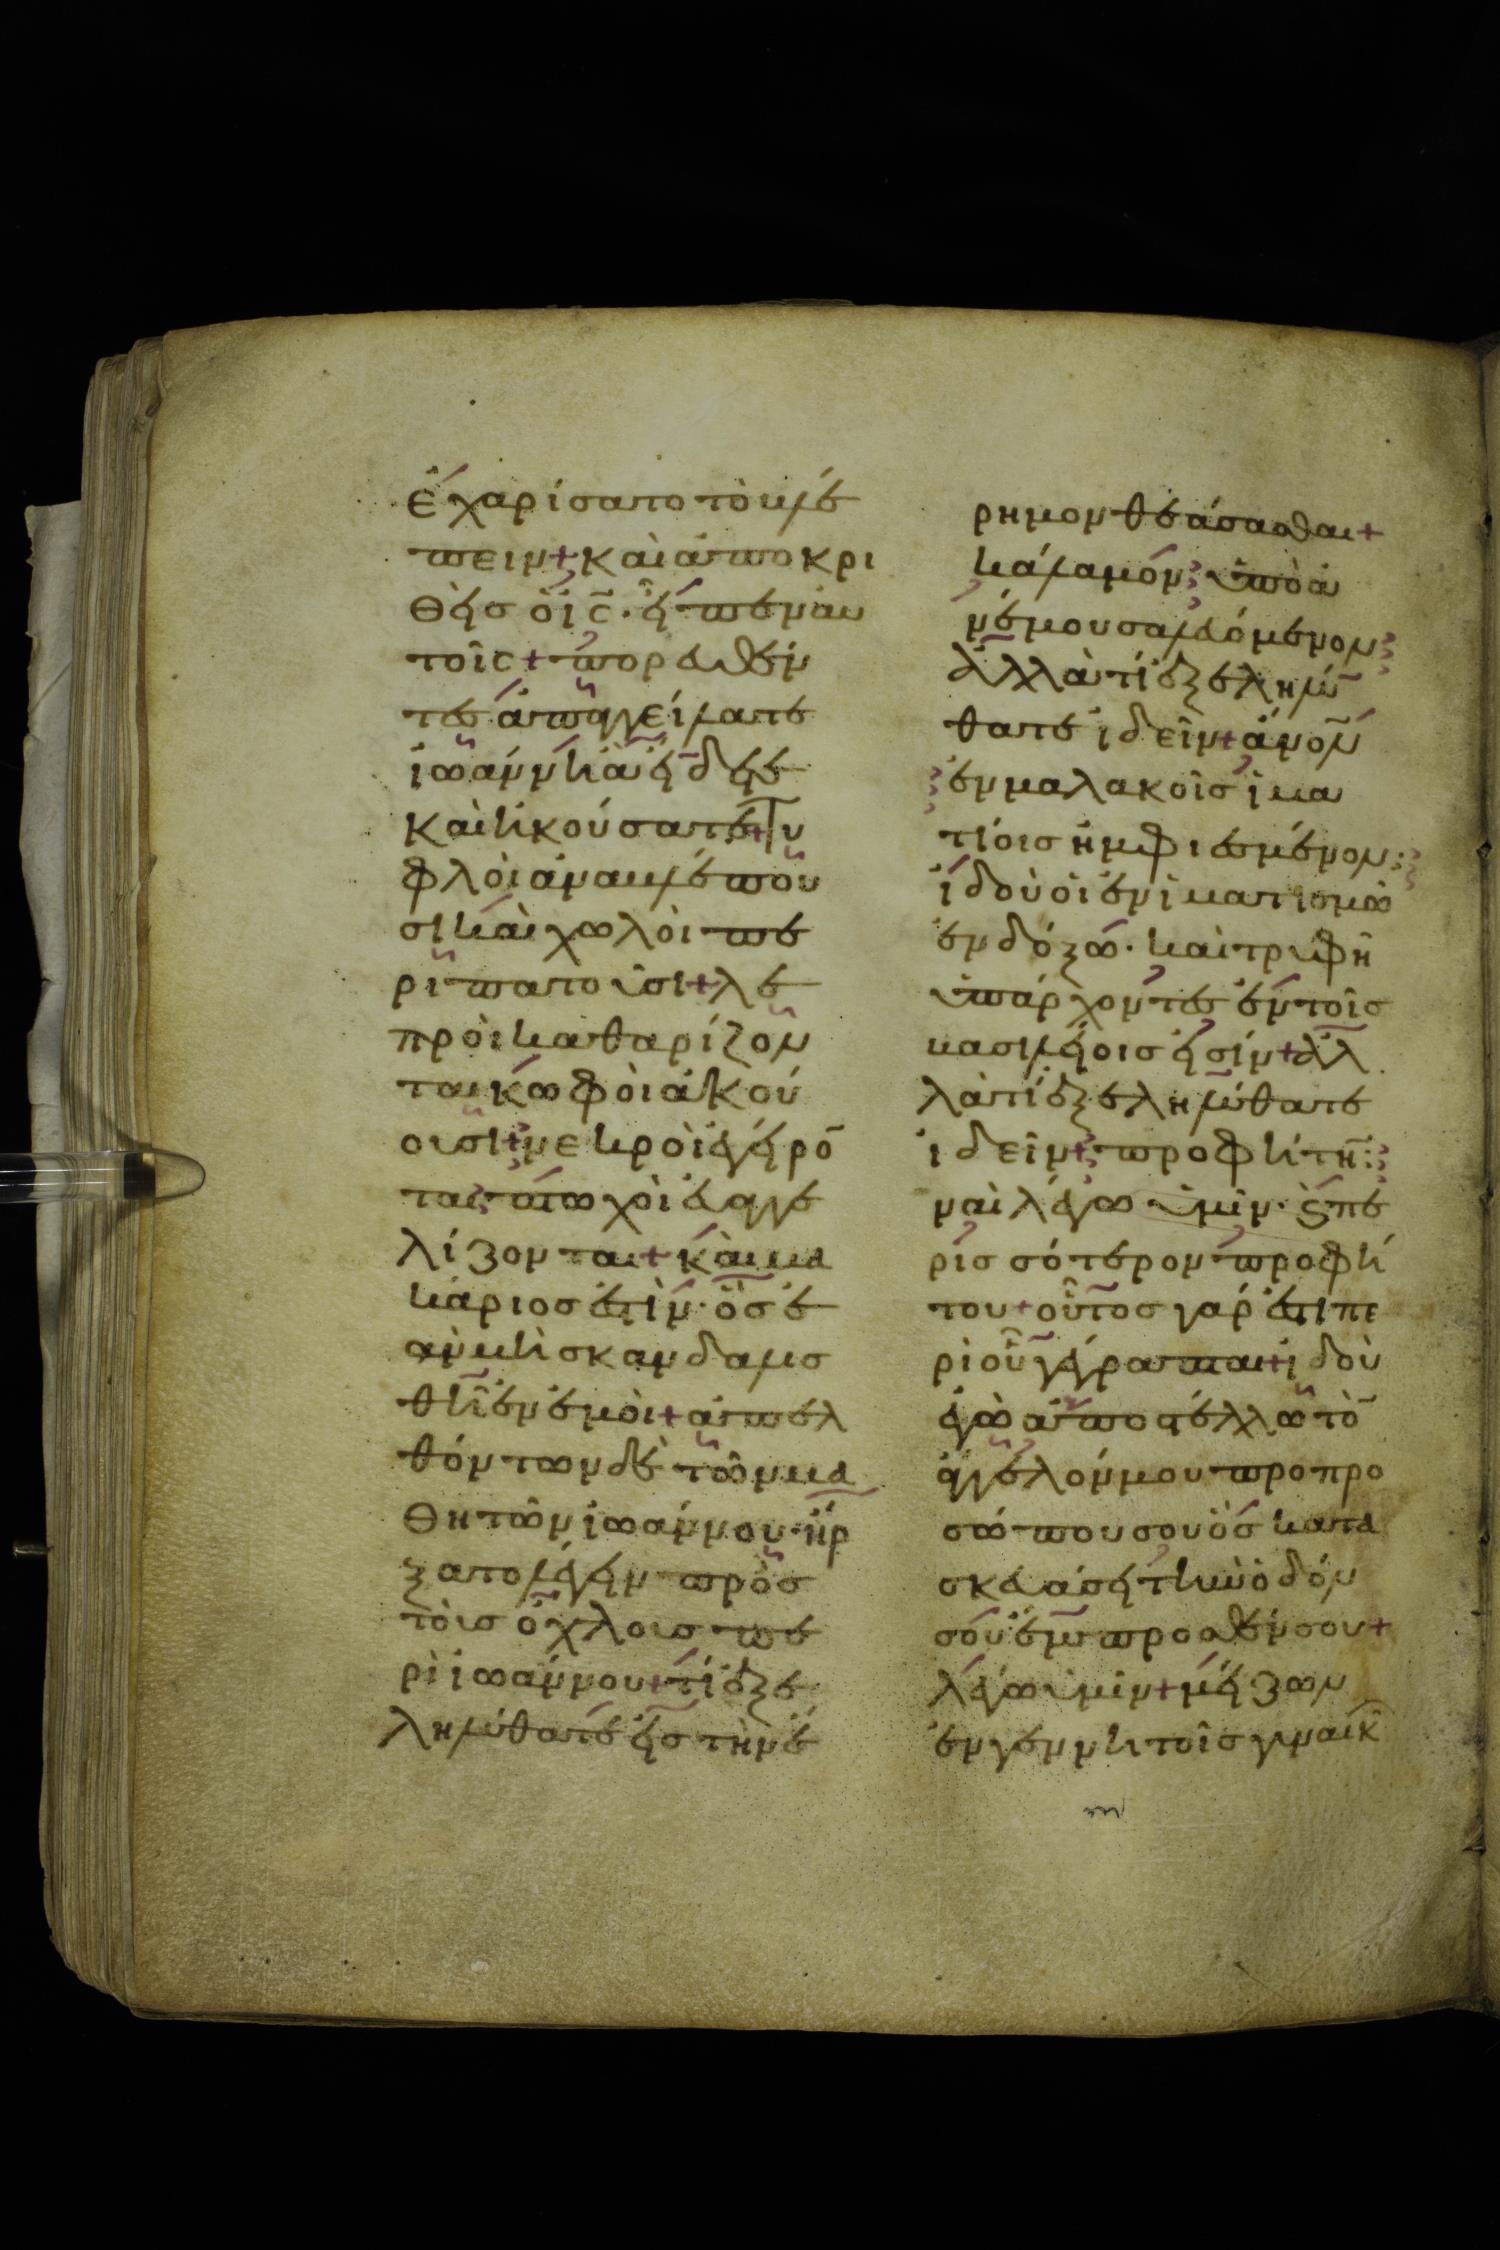 ἐχαρίσατο τὸ βλέ
πειν + καὶ ἀποκρι
θεὶς ὁ ι̅ς̅ · εἶπεν αὐ
τοῖς + πορευθέν
τες ἀπαγγείλατε
ἰωάννη ἃ εἴδετε
καὶ ἠκούσατε + Τυ
φλοὶ ἀναβλέπου
σι καὶ χωλοὶ πε
ριπατοῦσι + λε
προὶ καθαρίζον
ται κωφοὶ ἀκού
ουσι + νεκροὶ ἐγείρο̅
ται πτωχοὶ εὐαγγε
λίζονται + καὶ μα
κάριός ἐστιν · ὃς ἐ
ὰν μὴ σκανδαλισ
θῆ ἐν ἐμοί + ἀπελ
θόντων δὲ τῶν μα
θητῶν ἰωάννου · ἤρ
ξατο λέγειν πρὸς
τοὺς ὄχλους πε
ρὶ ἰωάννου + τί ἐξε
ληλύθατε εἰς τὴν ἔ
ρημον θεάσασθαι +
κάλαμον ὑπὸ ἀ
νέμου σαλευόμενον
ἀλλὰ τί ἐξεληλύ
θατε ἰδεῖν + ἄνον
ἐν μαλακοῖς ἱμα
τίοις ἠμφιεσμένον ·
ἰδοὺ οἱ ἐν ἱματισμῶ
ἐνδόξω · καὶ τρυφῆ
ὑπάρχοντες ἐν τοῖς
βασιλείοις εἰσίν + ἀλ
λὰ τί ἐξεληλύθατε
ἰδεῖν + προφήτην ·
ναὶ λέγω ὑμῖν · ϗ πε
ρισσότερον προφή
του + οὗτός γάρ ἐστι πε
ρὶ οὗ γέγραπται + ἰδοὺ
ἐγὼ ἀποστέλλω τὸ̅
ἄγγελόν μου πρὸ προ
σώπου σου ὃς κατα
σκευάσει τὴν ὁδόν
σου ἔμπροσθέν σου +
λέγω ὑμῖν + μείζων
ἐν γεννητοῖς γυναικῶ̅